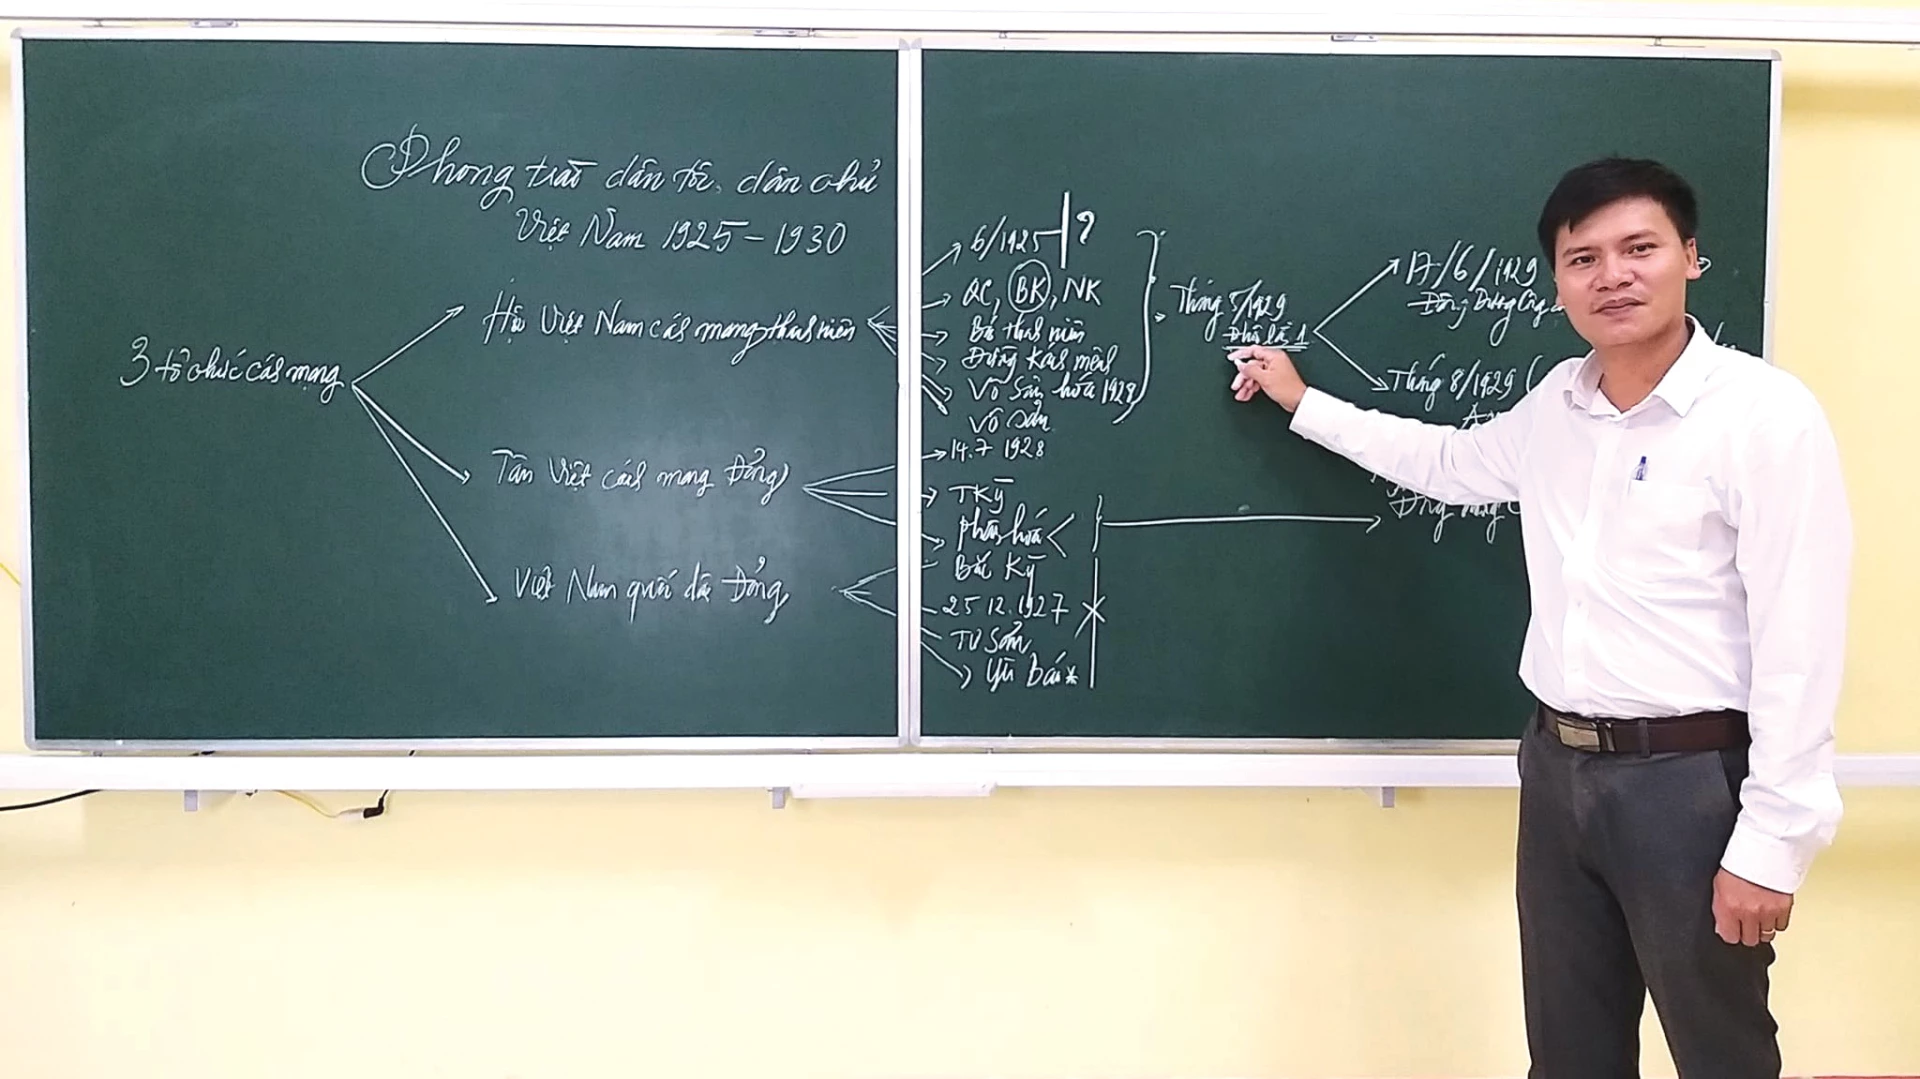 Phong trào dân tộc, dân chủ
Việt Nam 1925 - 1930
3 tổ chức cách mạng
Hội Việt Nam cách mạng thanh niên
Tân Việt cách mạng Đảng
Việt Nam quốc dân Đảng
6/1925 ?
QC, BK, NK
Báo thanh niên
Đường Kách mệnh
Vô Sản hóa 1928
Vô sản
14.7 1928
TKỳ
phân hóa <
Bắc Kỳ
25 12.1927
TƯ Sản
Yên Bái *
Tháng 5/1929
1
17/6/1929
Đông Dương Cộng
Tháng 8/1929 (
Đông Dương